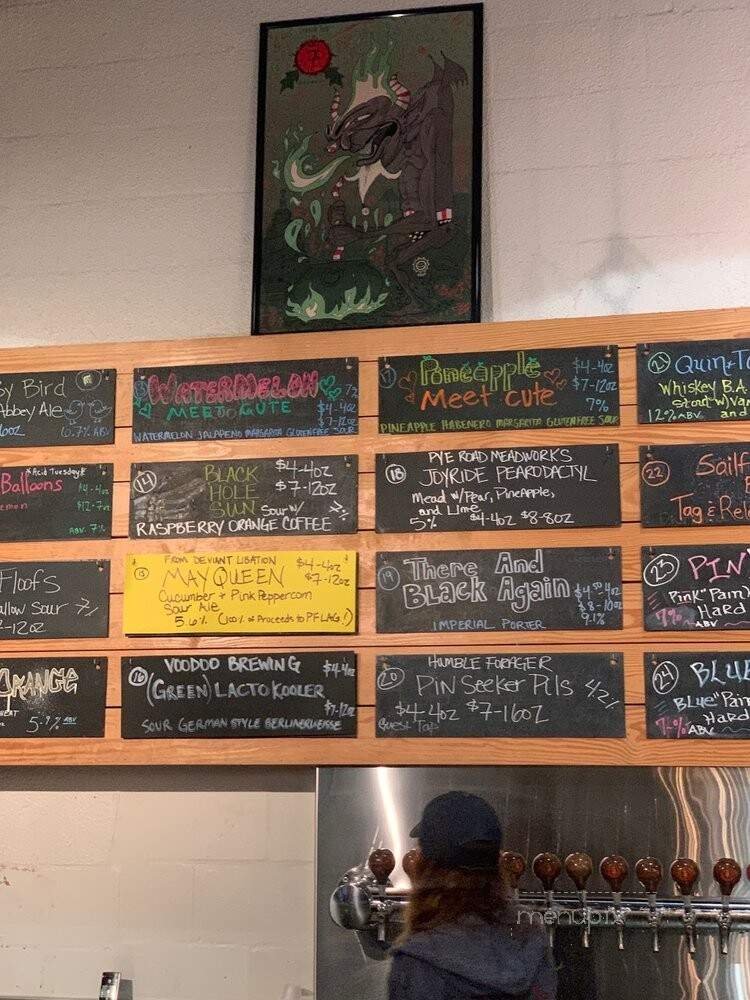 By Bird
Abbey Ale
10.7% ABV
*Acid Tuesday*
Balloons
$4-4oz
ABV. 7%
Floofs
Sour 7%
-12oz
ORANGE
5.9% ABV
WATERMELON 7%
MEET CUTE
$4-4oz
$7-12oz
WATERMELON JALAPENO MARGARITA GLUTEN FREE SOUR
14
BLACK
HOLE
SUN
$4-4oz
$7-12oz
Sour w/
7%
RASPBERRY ORANGE COFFEE
15
FROM DEVIANT LIBATION
MAY QUEEN
$4-4oz
$7-12oz
Cucumber + Pink Peppercorn
Sour Ale
5.6% (100% of Proceeds to PFLAG!)
16
VOODOO BREWING
$4-4oz
(GREEN) LACTO KOOLER
$7-12oz
SOUR GERMAN STYLE BERLINERWEISSE
17
Pineapple
Meet cute
$4-4oz
$7-12oz
7%
PINEAPPLE HABENERO MARGARITA GLUTEN FREE SOUR
18
PYE ROAD MEADWORKS
JOYRIDE PEARODACTYL
Mead w/Pear, Pineapple,
and Lime
5% $4-4oz $8-8oz
19
There And
Black Again
$8-10oz
9.1%
IMPERIAL PORTER
20
HUMBLE FORAGER
PinSeeker Pils 4.2%
$4-4oz $7-16oz
Guest Tap
21
Quin-T
Whiskey B.A.
Stout w/Van
12% ABV and
22
Sailf
Tag & Rele
23
PIN
Pink "Pain
Hard
7% ABV
24
BLUE
BLUE "Pain
Hard
7% ABV
menupix